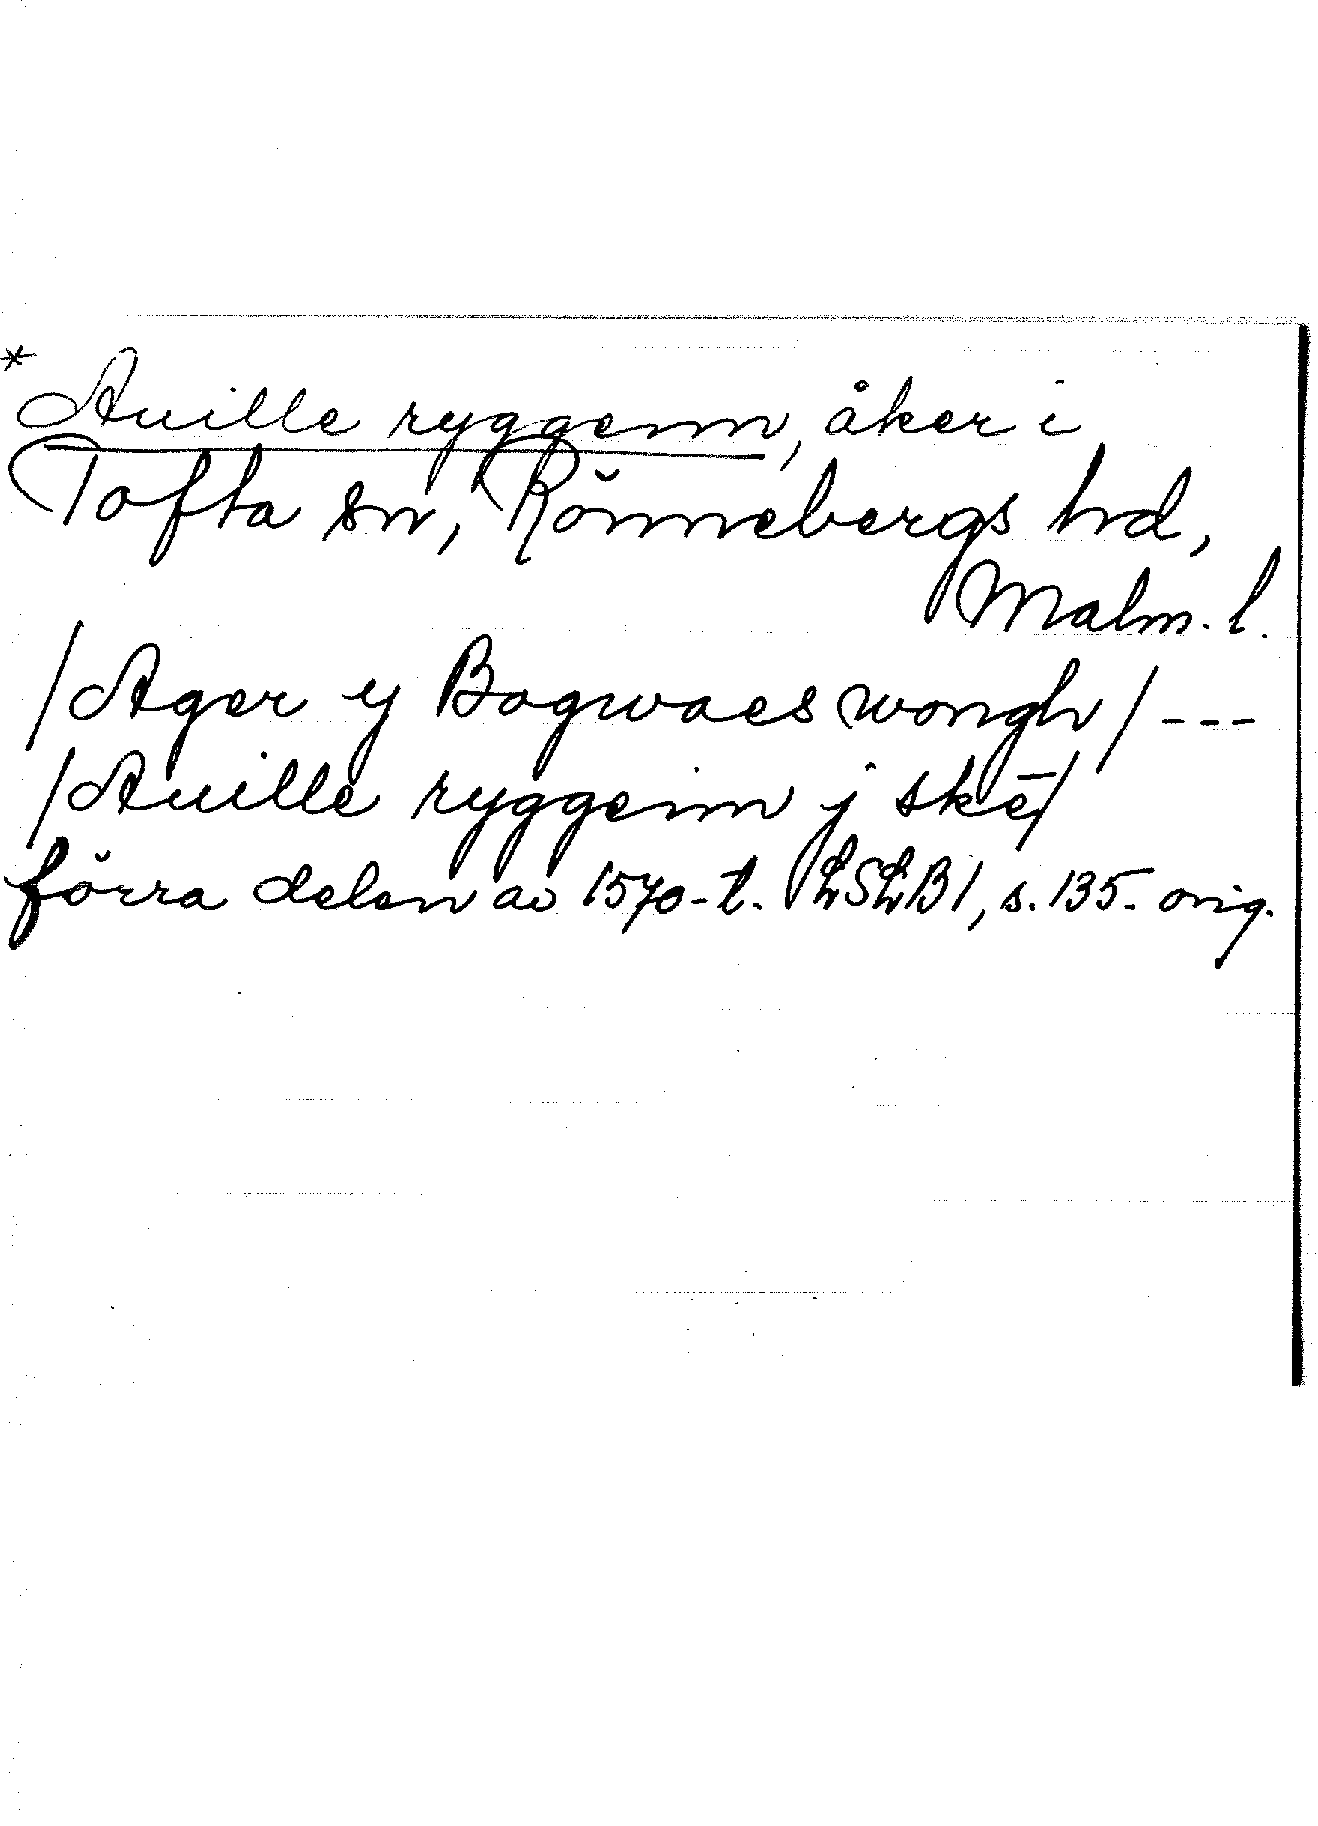 * Auille ryggenn, åker i
Tofta sn, Rönnebergs hd,
Malm. l.
/Ager y Bagwaes wongh/ ---
/Auille ryggeinn j skē/
förra delen av 1570-t. LSLB1, s. 135. orig.